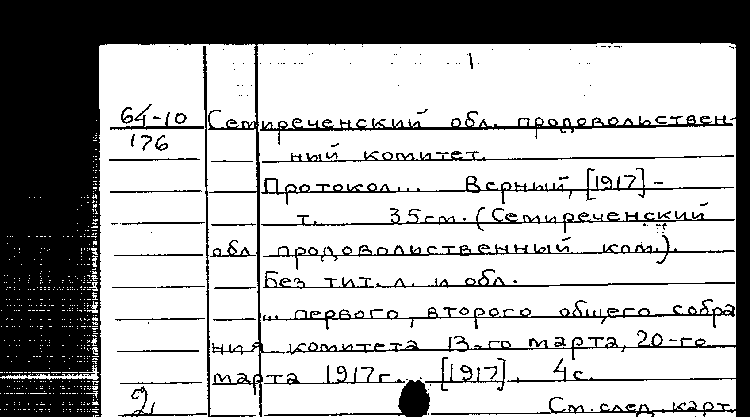 1
64-10 Семиреченский обл. продовольствен-
176 ный комитет.
Протокол... Верный, [1917] -
т. 35см. (Семиреченский
обл. продовольственный ком.).
Без тит. л. и обл.
... первого, второго общего собра
ния комитета 13-го марта, 20-го
марта 1917г. [1917]. 4с.
2, См. след. карт.